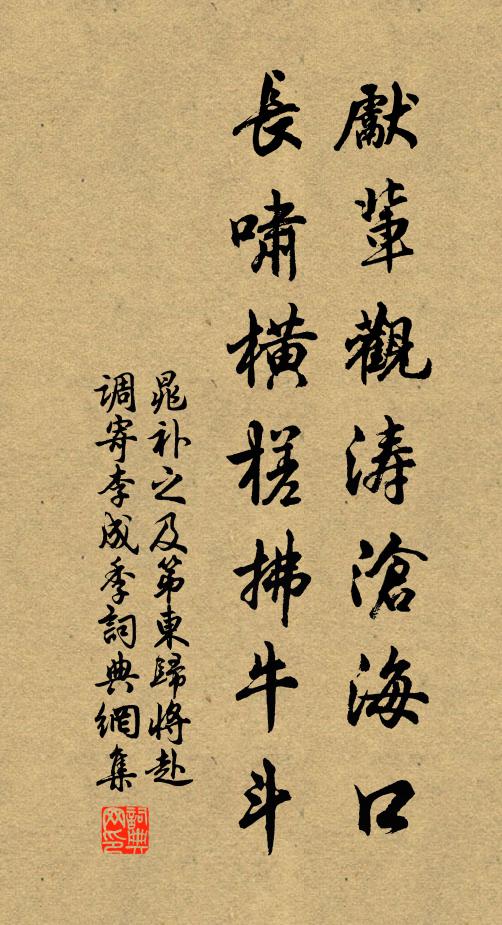 獻輩觀涛滄海口
長嘯横槎拂牛斗
晁补之及第東歸將赴
调寄李成季詞典網集
詞典网印